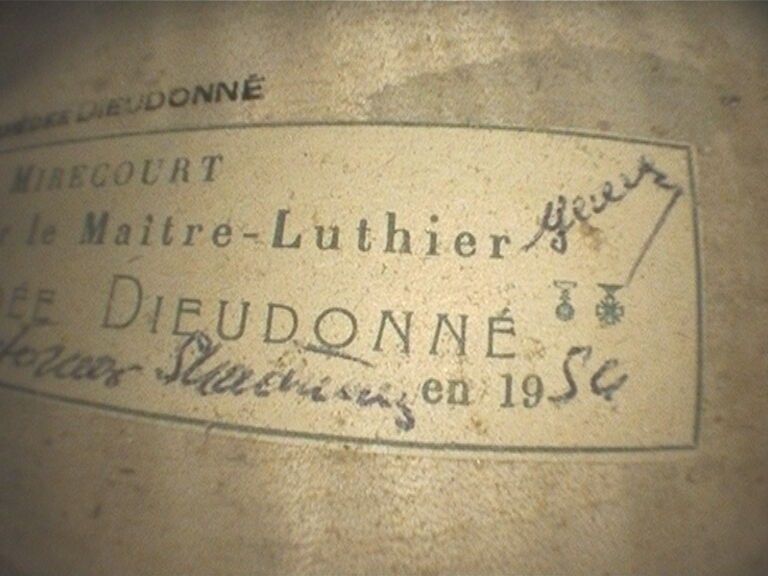 DIEUDONNÉ
MIRECOURT
r le Maître-Luthier
ÉE DIEUDONNÉ
en 1954